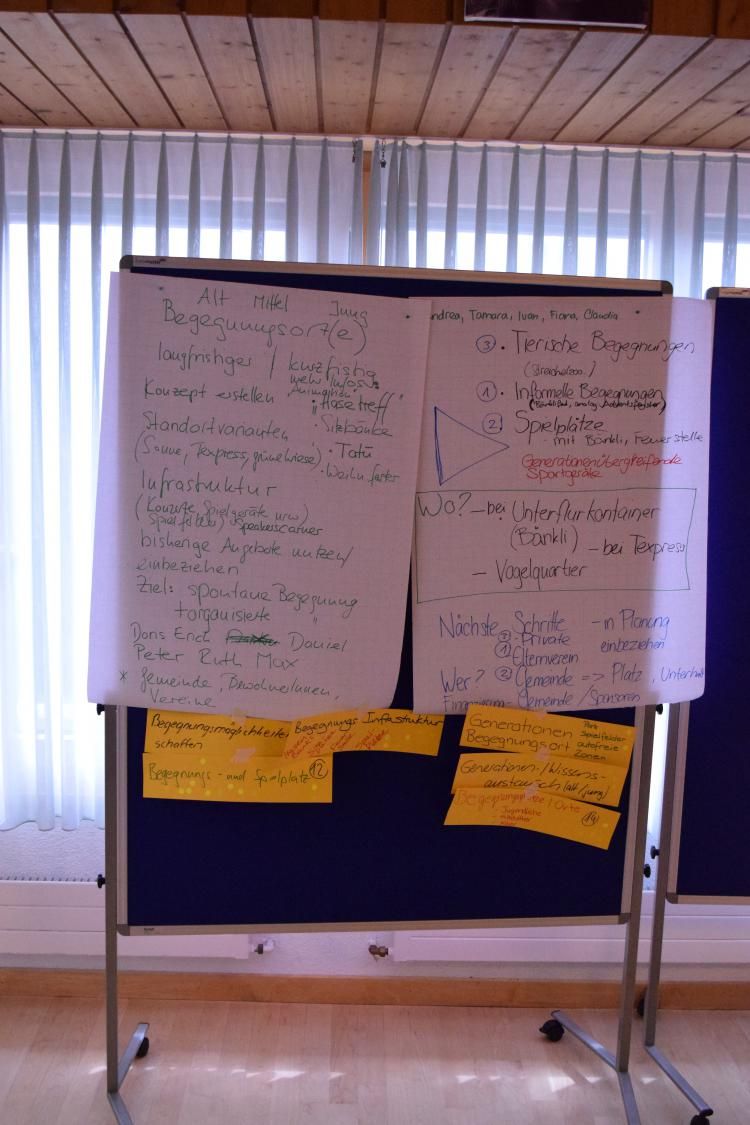 Alt Mittel Jung
Begegnungsort(e)
langfristiger / kurzfristig
mehr Infos
Konzept erstellen
"Hasetreff"
Standortvarianten
• Sitzbänke
(Sonne, Texpress, grüne Wiese)
• Tatü
Infrastruktur
(Konzerte, Spielgeräte usw)
Spielfelder, Speakerscorner
bisherige Angebote nutzen/
einbeziehen
Ziel: spontane Begegnung
+organisierte "
Doris Erich Daniel
Peter Ruth Max
* Gemeinde, BewohnerInnen,
Vereine
ndrea, Tamara, Ivan, Fiona, Claudia
③ • Tierische Begegnungen
(Streichelzoo)
① • Informelle Begegnungen
② • Spielplätze
- mit Bänkli, Feuerstelle
Generationenübergreifende
Sportgeräte
Wo? – bei Unterflurkontainer
(Bänkli)
– bei Texpress
– Vogelquartier
Nächste Schritte – in Planung
② - Private einbeziehen
① Elternverein
Wer? ② Gemeinde => Platz, Unterhalt
Finanzierung - Gemeinde / Sponsoren
Begegnungsmöglichkeiten
schaffen
Begegnungs Infrastruktur
Begegnungs- und Spielplatz ⑫
Generationen
Begegnungsort
Park
Spielfelder
autofreie
Zonen
Generationen-/Wissens-
austausch (alt/jung)
Begegnungsplätze / Orte
- Jugendliche
⑭